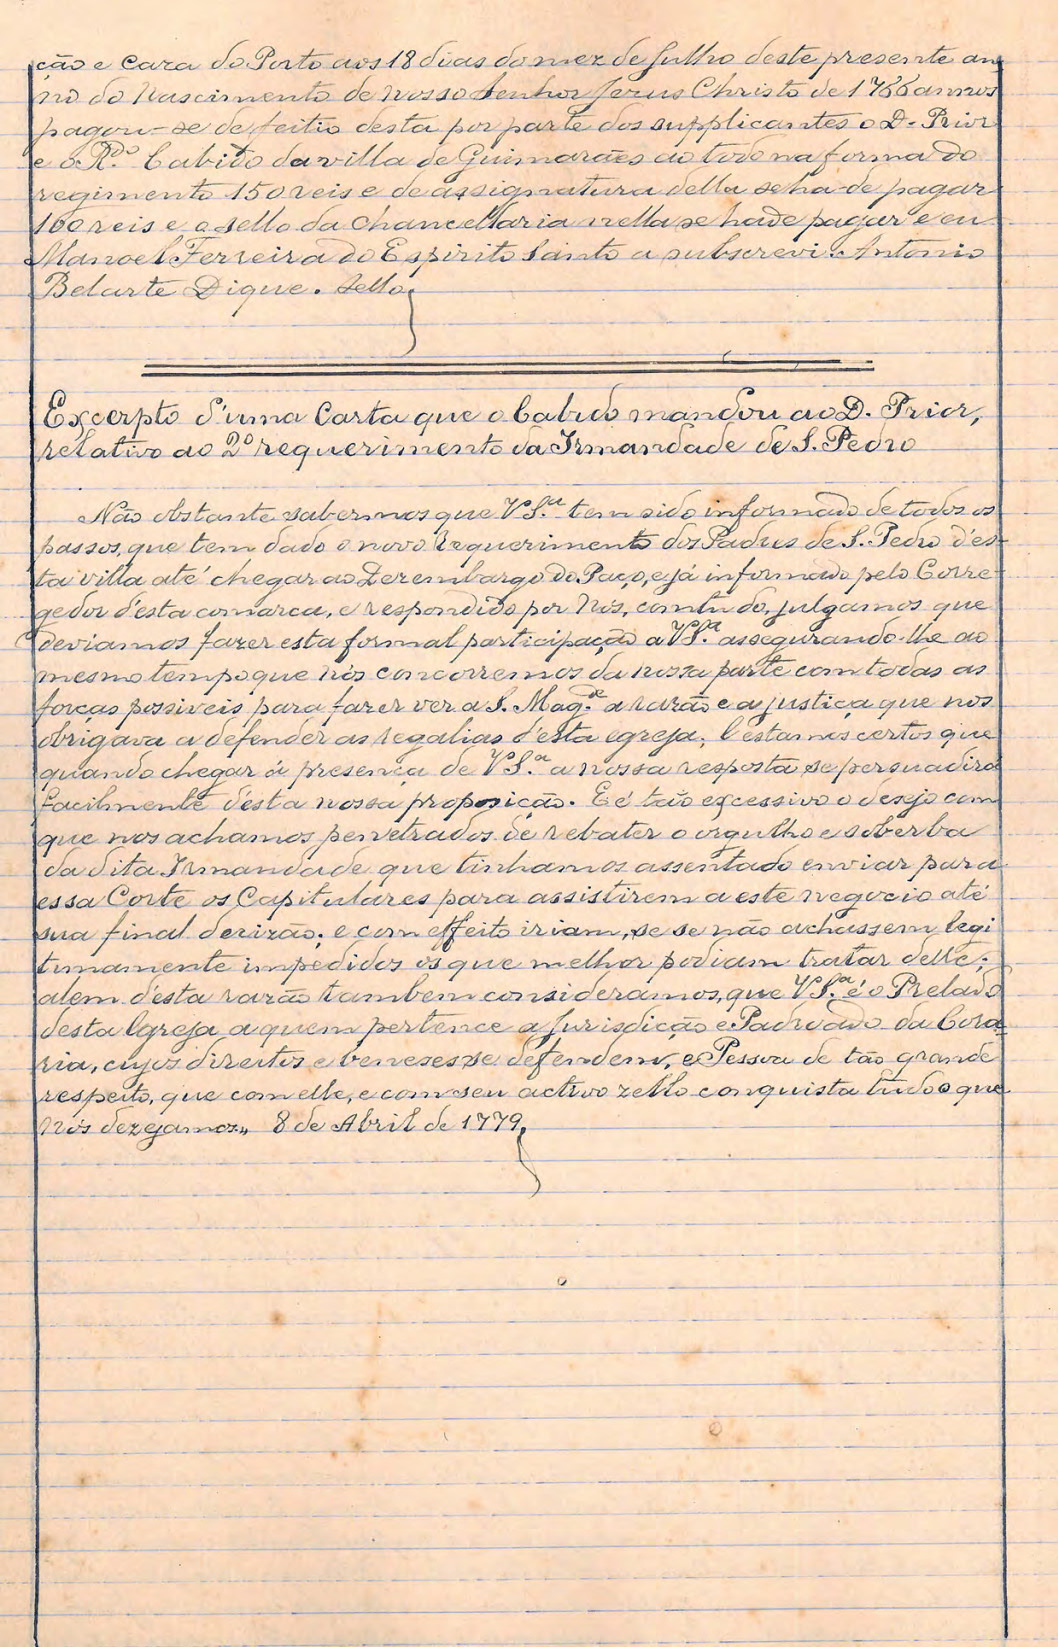 ção e caza do Porto aos 18 dias do mez de Julho deste presente an
no do Nascimento de Nosso Senhor Jezus Christo de 1766 annos
pagou-se de feitio desta por parte dos supplicantes o D. Prior
e o R.do Cabido da villa de Guimarães ao todo na forma do
regimento 150 reis e de assignatura della se ha-de pagar
160 reis e o sello da chancellaria nella se hade pagar e eu
Manoel Ferreira do Espirito Santo a subscrevi. Antonio
Belarte Dique. Sello.
Excerpto d'uma Carta que o Cabido mandou ao D. Prior,
relativo ao 2º requerimento da Irmandade de S. Pedro
Não obstante sabermos que V S.ª tem sido informado de todos os
passos, que tem dado o novo requerimento dos Padres de S. Pedro d'es-
ta villa até chegar ao Dezembargo do Paço, e já informado pelo Corre-
gedor d'esta comarca, e respondido por Nós, comtudo, julgamos que
deviamos fazer esta formal participação a V S.ª assegurando-lhe ao
mesmo tempo que nós concorremos da nossa parte com todas as
forças possiveis para fazer ver a S. Mag.de a razão e a justiça que nos
obrigava a defender as regalias d'esta egreja; E estamos certos que
quando chegar á presença de V S.ª a nossa resposta se persuadirá
facilmente d'esta nossa proposição. E é tão excessivo o desejo com
que nos achamos penetrados de rebater o orgulho e soberba
da dita Irmandade que tinhamos assentado enviar para
essa Corte os Capitulares para assistirem a este negocio até
sua final decizão; e com effeito iriam, se se não achassem legi
timamente impedidos os que melhor podiam tratar delle;
alem d'esta razão tambem consideramos, que V S.ª é o Prelado
desta Igreja a quem pertence a Jurisdicção e Padroado da Cora-
ria, cujos direitos e beneses se defendem, e Pessoa de tão grande
respeito, que com elle, e com seu activo zello conquista tudo o que
Nós dezejamos,, 8 de Abril de 1779,